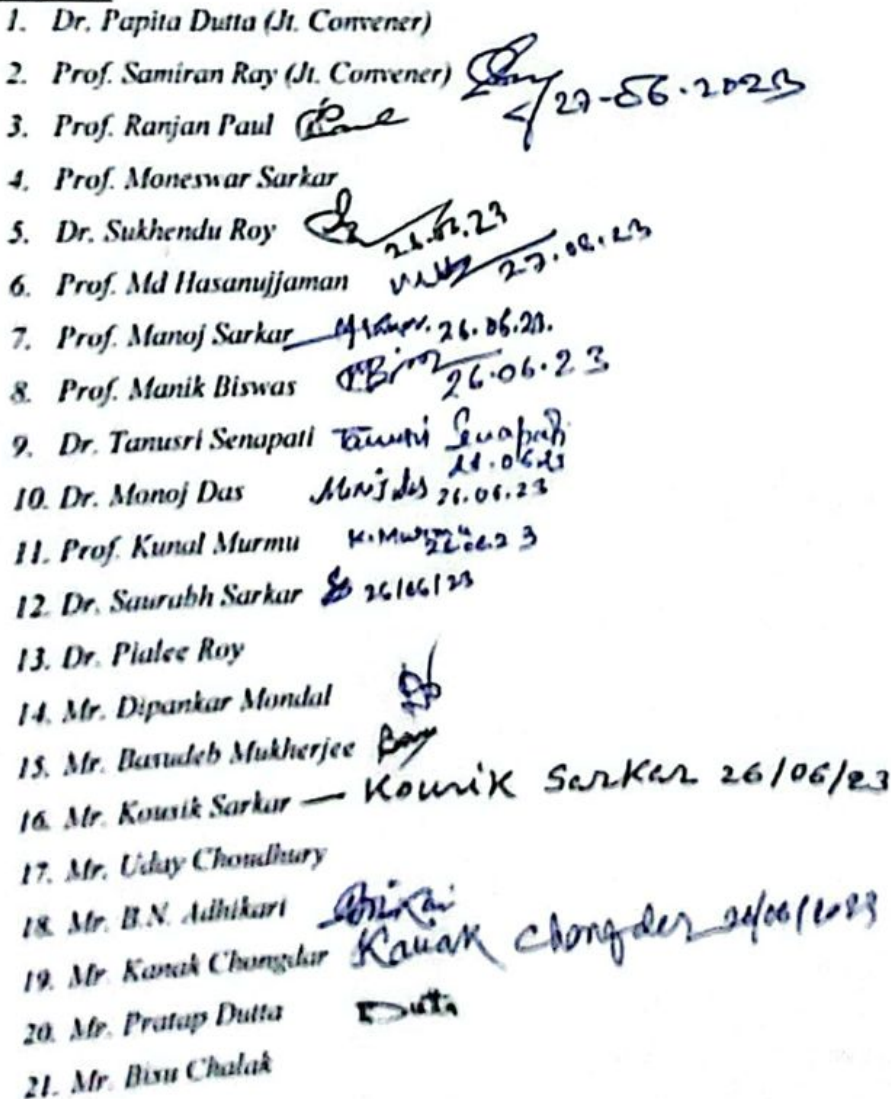 1. Dr. Papita Dutta (Jt. Convener)
2. Prof. Samiran Ray (Jt. Convener) 27-06-2023
3. Prof. Ranjan Paul
4. Prof. Moneswar Sarkar
5. Dr. Sukhendu Roy 26.06.23
6. Prof. Md Hasanujjaman 27.06.23
7. Prof. Manoj Sarkar 26.06.23.
8. Prof. Manik Biswas 26.06.23
9. Dr. Tanusri Senapati Tanusri Senapati
10. Dr. Monoj Das Monoj Das 26.06.23
11. Prof. Kunal Murmu K. Murmu 26.06.23
12. Dr. Saurabh Sarkar 26/06/23
13. Dr. Pialee Roy
14. Mr. Dipankar Mondal
15. Mr. Basudeb Mukherjee
16. Mr. Kousik Sarkar — Kousik Sarkar 26/06/23
17. Mr. Uday Choudhury
18. Mr. B.N. Adhikari
19. Mr. Kanak Chongdar Kanak Chongder
20. Mr. Pratap Dutta Dutta
21. Mr. Bisu Chalak